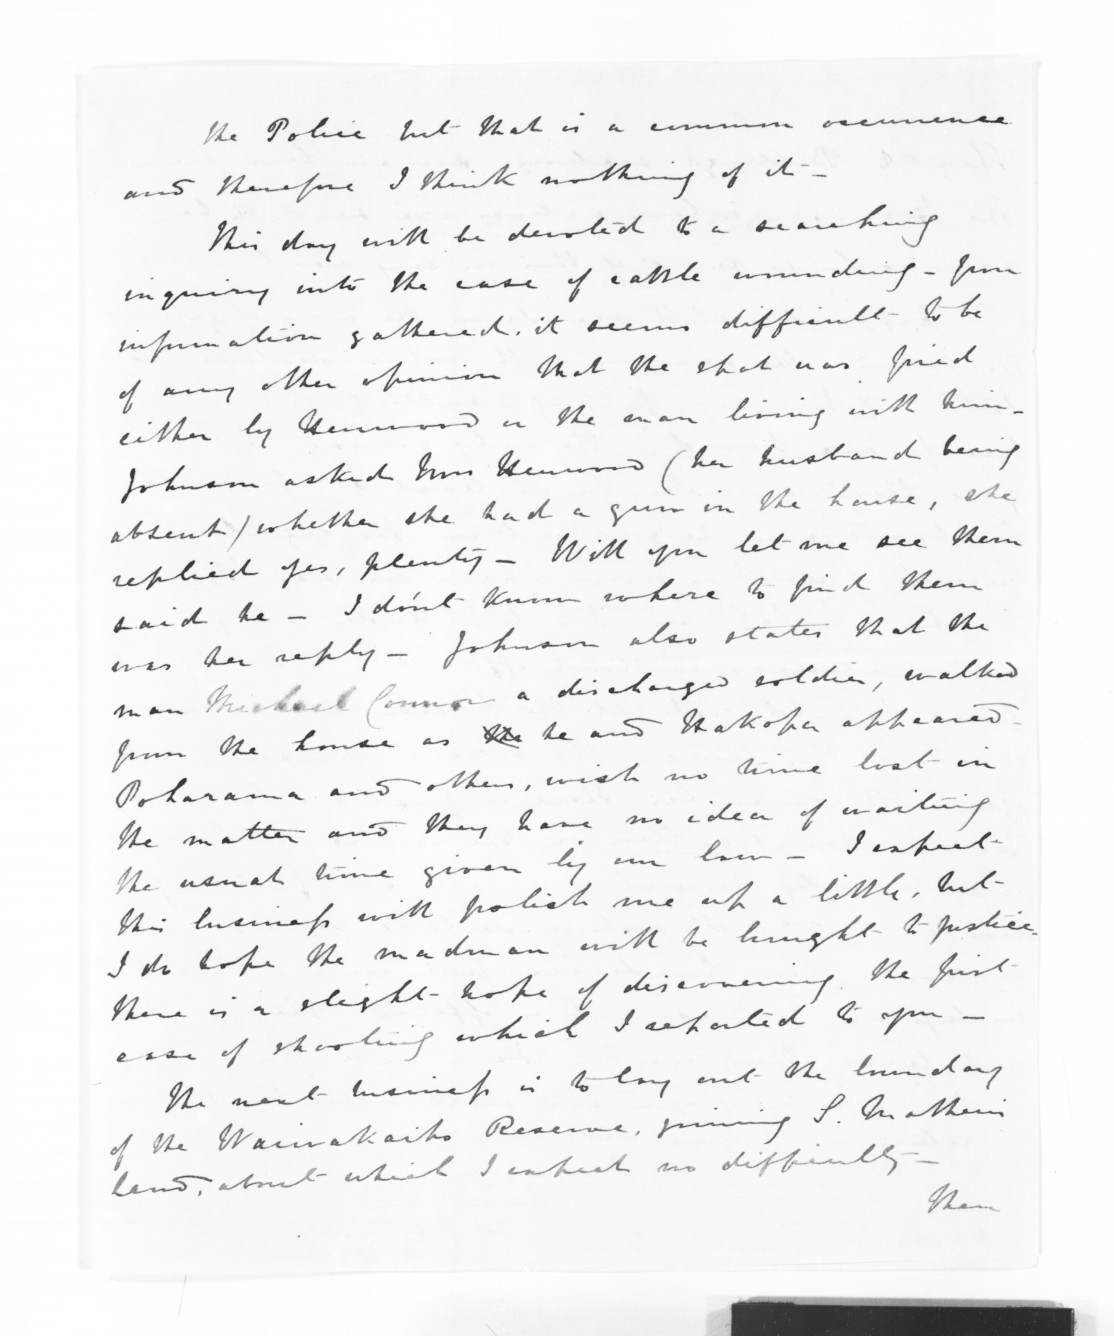 the Police but that is a common occurrence
and therefore I think nothing of it -
This day will be devoted to a searching
inquiry into the case of cattle wounding - from
information gathered, it seems difficult to be
of any other opinion that the shot was fired
either by Henwood or the man living with him -
Johnson asked Mrs Henwood (her husband being
absent) whether she had a gun in the house, she
replied yes, plenty - Will you let me see them
said he - I don't know where to find them
was her reply - Johnson also states that the
man Michael Connor a discharged soldier, walked
from the house as he and Hakopa appeared -
Poharama and others, wish no time lost in
the matter and they have no idea of waiting
the usual time given by our law - I expect
this business will polish me up a little, but
I do hope the madman will be brought to justice -
there is a slight hope of discovering the first
case of shooting which I reported to you -
The next business is to lay out the boundary
of the Waiwakaiho Reserve, joining S. Mathews
land, about which I expect no difficulty -
Then